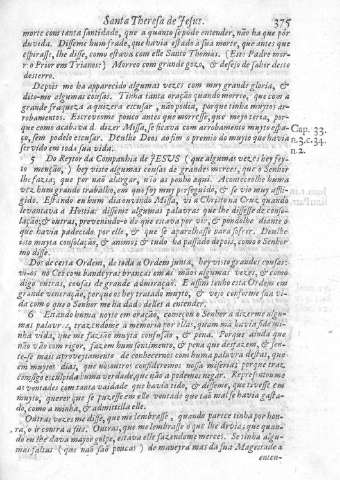 Santa Theresa de Jesus. 375
morte com tanta santidade, que a quanto se póde entender, não ha que pór
duvida. Disseme hum frade, que havia estado à sua morte, que antes que
espirasse, lhe disse, como estava com elle Santo Thomas. (Este Padre mor-
r o Prior em Trianos) Morreo com grande gozo, & desejo de sahir deste
desterro.
Depois me ha apparecido algumas vezes com muy grande gloria, &
dito-me algumas cousas. Tinha tanta oração quando morreo, que com a
grande fraqueza a quizera escusar, não podia, por que tinha muytos ar-
robamentos. Escreveome pouco antes que morresse, que meyo teria, por-
que como acabava d dizer Missa, se ficava com arrobamento muyto espa-
ço, sem podelo escusar. Deulhe Deos ao fim o premio do muyto que havia
servido em toda sua vida.
Cap. 33.
n.3. c. 34.
n. 2.
5 Do Reytor da Companhia de JESUS (que algumas vezes hey fey-
to menção,) hey visto algumas cousas de grandes mercès, que o Senhor
lhe fazia, que por não alargar, não as ponho aqui. Aconteceolhe huma
vez hum grande trabalho, em que foy muy perseguido, & se vio muy affli-
gido. Estando eu hum dia ouvindo Missa, vi a Christo na Cruz quando
levantava a Hostia: disseme algumas palavras que lhe dissesse de conso-
lação; & outras, prevenindo-o do que estava por vir, & pondolhe diante o
que havia padecido por elle, & que se aparelhasse para sofrer. Deulhe
isto muyta consolação, & animo; & tudo ha passado depois, como o Senhor
mo disse.
Dos de certa Ordem, de toda a Ordem junta, hey visto grandes cousas:
vi-os no Ceo com bandeyras brancas em as mãos algumas vezes, & como
digo outras, cousas de grande admiração. E assim tenho esta Ordem em
grande veneração, porque os hey tratado muyto, & vejo conforme sua vi-
da com o que o Senhor me ha dado delles a entender.
6 Estando huma noyte em oração, começou o Senhor a dizerme algu-
mas palavras, trazendome à memoria por ellas, quam má havia sido mi-
nha vida, que me fazião muyta confusão, & pena. Porque ainda que
não vão com rigor, fazem hum sentimento, & pena que desfazem, & sen-
te-se mais aproveytamento de conhecernos com huma palavra destas, que
em muytos dias, que nósoutros consideremos nossa miseria; porque traz
comsigo esculpida huma verdade, que não a podemos negar. Representoume
as vontades com tanta vaidade que havia tido, & disseme, que tivesse em
muyto, querer que se puzesse em elle vontade que tão mal se havia gasta-
do, como a minha, & admittilla elle.
Outras vezes me disse, que me lembrasse, quando parece tinha por hon-
ra, o ir contra a sua. Outras, que me lembrasse o que lhe devia; que quan-
do eu lhe dava mayor golpe, estava elle fazendome mercès. Se tinha algu-
mas faltas (que não são poucas) de maneyra mas dá sua Magestade a
enten-